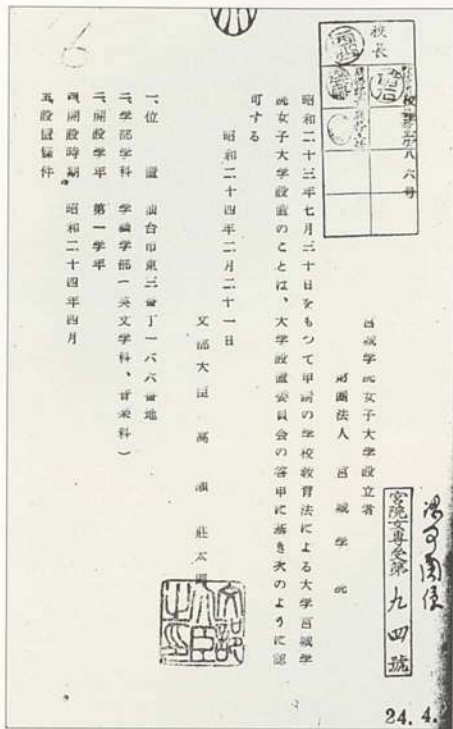 校長
八六号
認可関係
宮院女専受第九四號
24. 4.
宮城学院女子大学設立者
財團法人 宮城学院
昭和二十三年七月三十日をもつて申請の学校教育法による大学宮城学
院女子大学設置のことは、大学設置委員会の答申に基き次のように認
可する
昭和二十四年二月二十一日
文部大臣 高瀬 荘太郎
文部大臣之印
一、位 置 仙台市東三番丁一六六番地
二、学部学科 学芸学部(英文学科、音楽科)
三、開設学年 第一学年
四、開設時期 昭和二十四年四月
五、設置條件